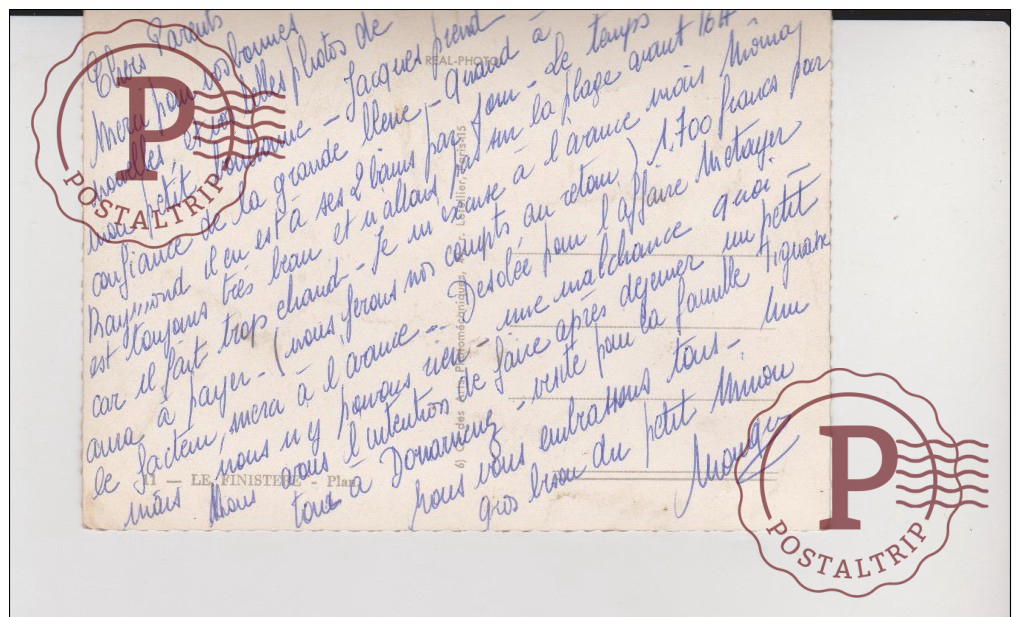 Chers Parents
Merci pour vos bonnes
nouvelles, et les belles photos de
mon petit bonhomme - Jacques prend
confiance de la grande bleue - Quand à
Raymond il en est à ses 2 bains par jour - Le temps
est toujours très beau et n'allons pas sur la plage avant 16H
car il fait trop chaud - Je m'excuse à l'avance mais Mémé
aura à payer - (nous ferons nos compts au retour) 1.700 francs par
le facteur, merci à l'avance - Desolée pour l'affaire Metayer
mais nous n'y pouvons rien - une malchance quoi -
Nous avons l'intention de faire après dejeuner un petit
tour à Douarnenez - visite pour la famille
nous vous embrassons tous - Un
gros bisou du petit Minou
REAL-PHOTO
11 — LE FINISTERE - Plan
POSTALTRIP
POSTALTRIP